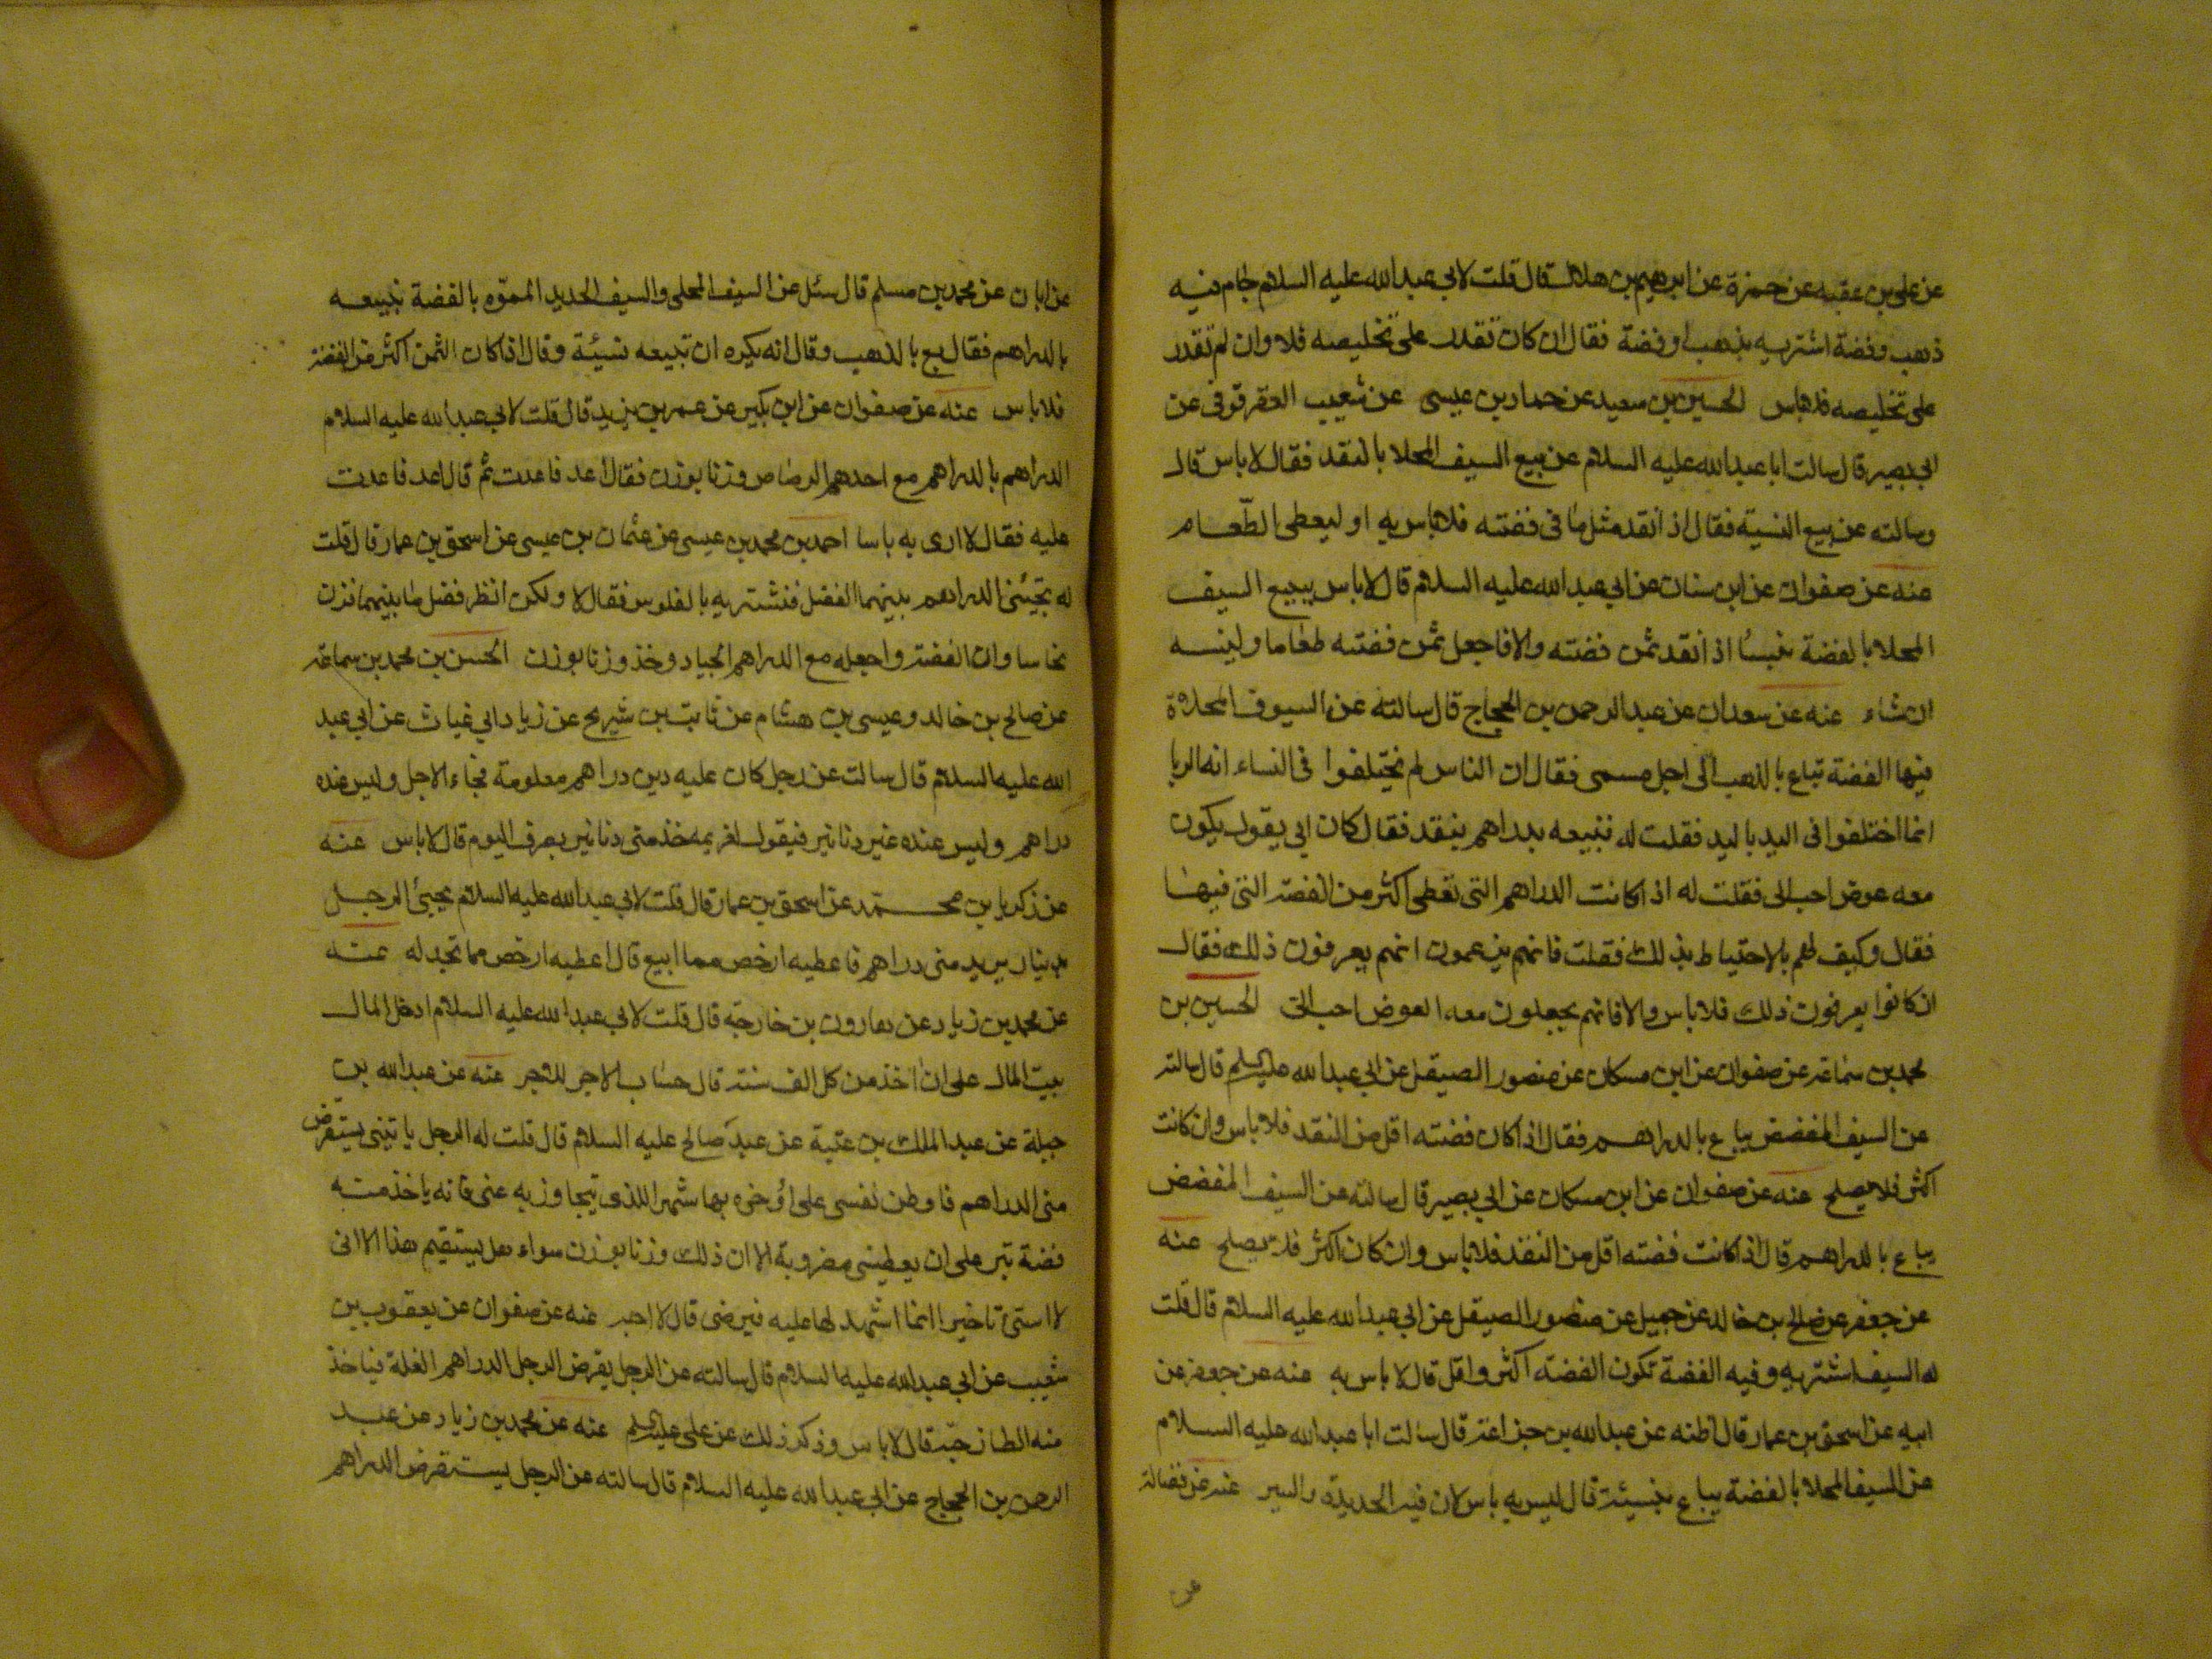 عن علي بن عقبه عن حمزة عن ابرهيم بن هلال قال قلت لابي عبد الله عليه السلام جام فيه
ذهب وفضة اشتريه بذهب او فضة فقال ان كان تقدر على تخليصه فلا وان لم تقدر
على تخليصه فلا باس الحسين بن سعيد عن حماد بن عيسى عن شعيب العقرقوفي عن
ابي بصير قال سالت ابا عبد الله عليه السلام عن بيع السيف المحلا بالنقد فقال لا باس قال
وسالته عن بيع النسية فقال اذا نقد مثل ما في فضته فلا باس به او ليعطى الطعام
عنه عن صفوان عن ابن سنان عن ابي عبد الله عليه السلام قال لا باس ببيع السيف
المحلا بالفضة بنسا اذا نقد ثمن فضته والا فاجعل ثمن فضته طعاما ولينسه
ان شاء عنه عن سعدان عن عبد الرحمن بن الحجاج قال سالته عن السيوف المحلاة
فيها الفضة تباع بالذهب الى اجل مسمى فقال ان الناس لم يختلفوا في النساء انه الربا
انما اختلفوا في اليد باليد فقلت له فنبيعه بدراهم بنقد فقال كان ابي يقول يكون
معه عوض احب الى فقلت له اذا كانت الدراهم التى تعطى اكثر من الفضة التى فيها
فقال وكيف لهم بالاحتياط بذلك فقلت فانهم يزعمون انهم يعرفون ذلك فقال
ان كانوا يعرفون ذلك فلا باس والا فانهم يجعلون معه العوض احب الى الحسين بن
محمد بن سماعة عن صفوان عن ابن مسكان عن منصور الصيقل عن ابي عبد الله عليه السلم قال سالته
عن السيف المفضض يباع بالدراهم فقال اذا كان فضته اقل من النقد فلا باس وان كانت
اكثر فلا يصلح عنه عن صفوان عن ابن مسكان عن ابي بصير قال سالته عن السيف المفضض
يباع بالدراهم قال اذا كانت فضته اقل من النقد فلا باس وان كان اكثر فلا يصلح عنه
عن جعفر عن صالح بن خالد عن جميل عن منصور الصيقل عن ابي عبد الله عليه السلام قال قلت
له السيف اشتريه وفيه الفضة تكون الفضة اكثر واقل قال لا باس به عنه عن جعفر عن
ابيه عن اسحق بن عمار قال اظنه عن عبد الله بن جذاعة قال سالت ابا عبد الله عليه السلام
عن السيف المحلا بالفضة يباع بنسيئة قال ليس به باس لان فيه الحديدة والسير عنه عن فضالة
عن
عن ابان عن محمد بن مسلم قال سئل عن السيف المحلى والسيف الحديد المموّه بالفضة نبيعه
بالدراهم فقال بع بالذهب وقال انه يكره ان تبيعه نسيئة وقال اذا كان الثمن اكثر من الفضة
فلا باس عنه عن صفوان عن ابن بكير عن عمر بن يزيد قال قلت لابي عبد الله عليه السلام
الدراهم بالدراهم مع احدهم الرصاص وزنا بوزن فقال اعد فاعدت ثم قال اعد فاعدت
عليه فقال لا ارى به باسا احمد بن محمد بن عيسى عن عثمان بن عيسى عن اسحق بن عمار قال قلت
له تجيئنى الدراهم بينهما الفضل فنشتريه بالفلوس فقال لا ولكن انظر فضل ما بينهما فزن
نحاسا وان الفضة واجعله مع الدراهم الجياد وخذ وزنا بوزن الحسن بن محمد بن سماعة
عن صالح بن خالد وعيسى بن هشام عن ثابت بن شريح عن زياد ابي غياث عن ابي عبد
الله عليه السلام قال سالت عن رجل كان عليه دين دراهم معلومة فجاء الاجل وليس عنده
دراهم وليس عنده غير دنانير فيقول لغريمه خذ منى دنانير بصرف اليوم قال لا باس عنه
عن زكريا بن محمد عن اسحق بن عمار قال قلت لابي عبد الله عليه السلام يجيئ الرجل
بدينار يريد منى دراهم فاعطيه ارخص مما ابيع قال اعطيه ارخص مما تجد له عنه
عن محمد بن زياد عن هارون بن خارجة قال قلت لابي عبد الله عليه السلام ادخل المال
بيت المال على ان اخذ من كل الف ستة قال حساب الاجر للاجر عنه عن عبد الله بن
جبلة عن عبد الملك بن عتبة عن عبد صالح عليه السلام قال قلت له الرجل ياتينى يستقرض
منى الدراهم فاوطن نفسى على اؤخره بها شهرا للذى يتجاوز به عنى فانه ياخذ منه
فضة تبر على ان يعطينى مضروبة الا ان ذلك وزنا بوزن سواء هل يستقيم هذا الا انى
لا اسمي تاخيرا انما اشهد لها عليه فيرضى قال لا احبه عنه عن صفوان عن يعقوب بن
شعيب عن ابي عبد الله عليه السلام قال سالته عن الرجل يقرض الرجل الدراهم الغلة فياخذ
منه الطازجية قال لا باس وذكر ذلك عن علي عليه السلم عنه عن محمد بن زياد عن عبد
الرحمن بن الحجاج عن ابي عبد الله عليه السلام قال سالته عن الرجل يستقرض الدراهم